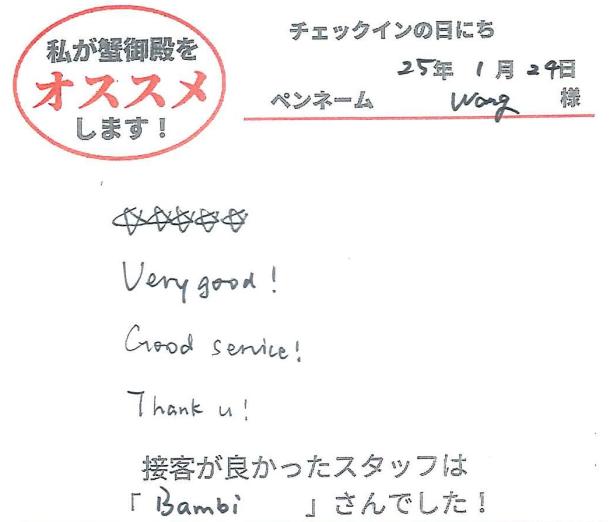 私が蟹御殿を
オススメ
します!
チェックインの日にち
25年 1月 29日
ペンネーム Wong 様
☆☆☆☆☆
Very good!
Good service!
Thank u!
接客が良かったスタッフは
「 Bambi 」さんでした!